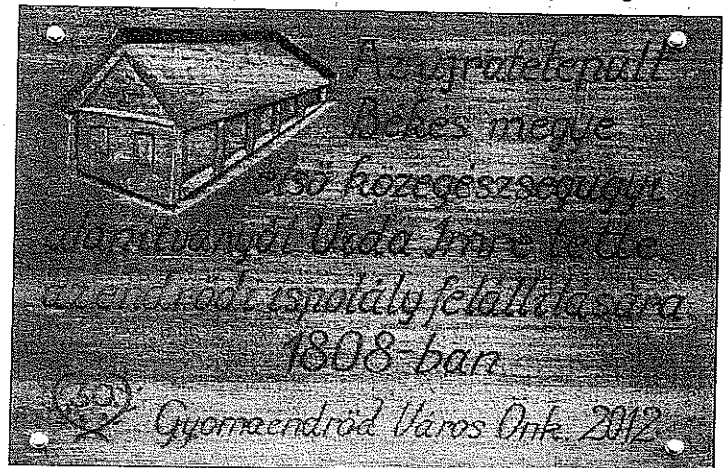 Az újratelepült
Békés megye
első közegészségügyi
alapítványát Vida Imre tette
az endrődi ispotály felállítására
1808-ban
Gyomaendrőd Város Önk. 2012